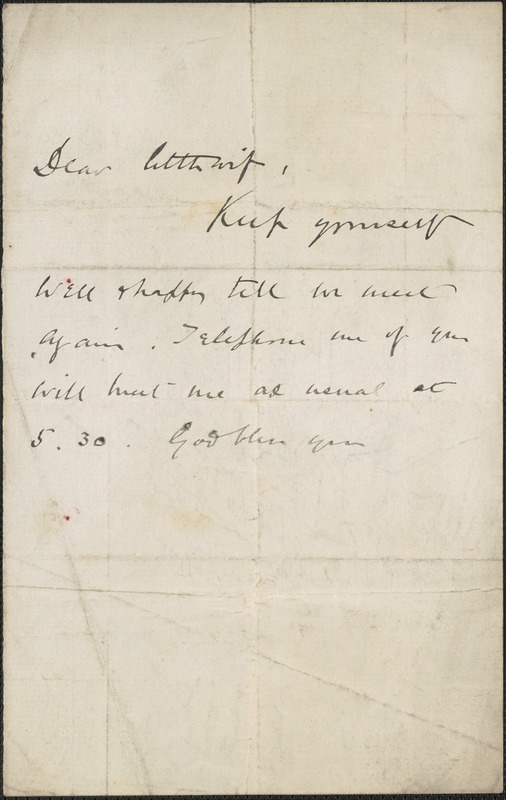 Dear little wife,
Keep yourself
well & happy till we meet
again. Telephone me if you
will meet me as usual at
5.30. God bless you